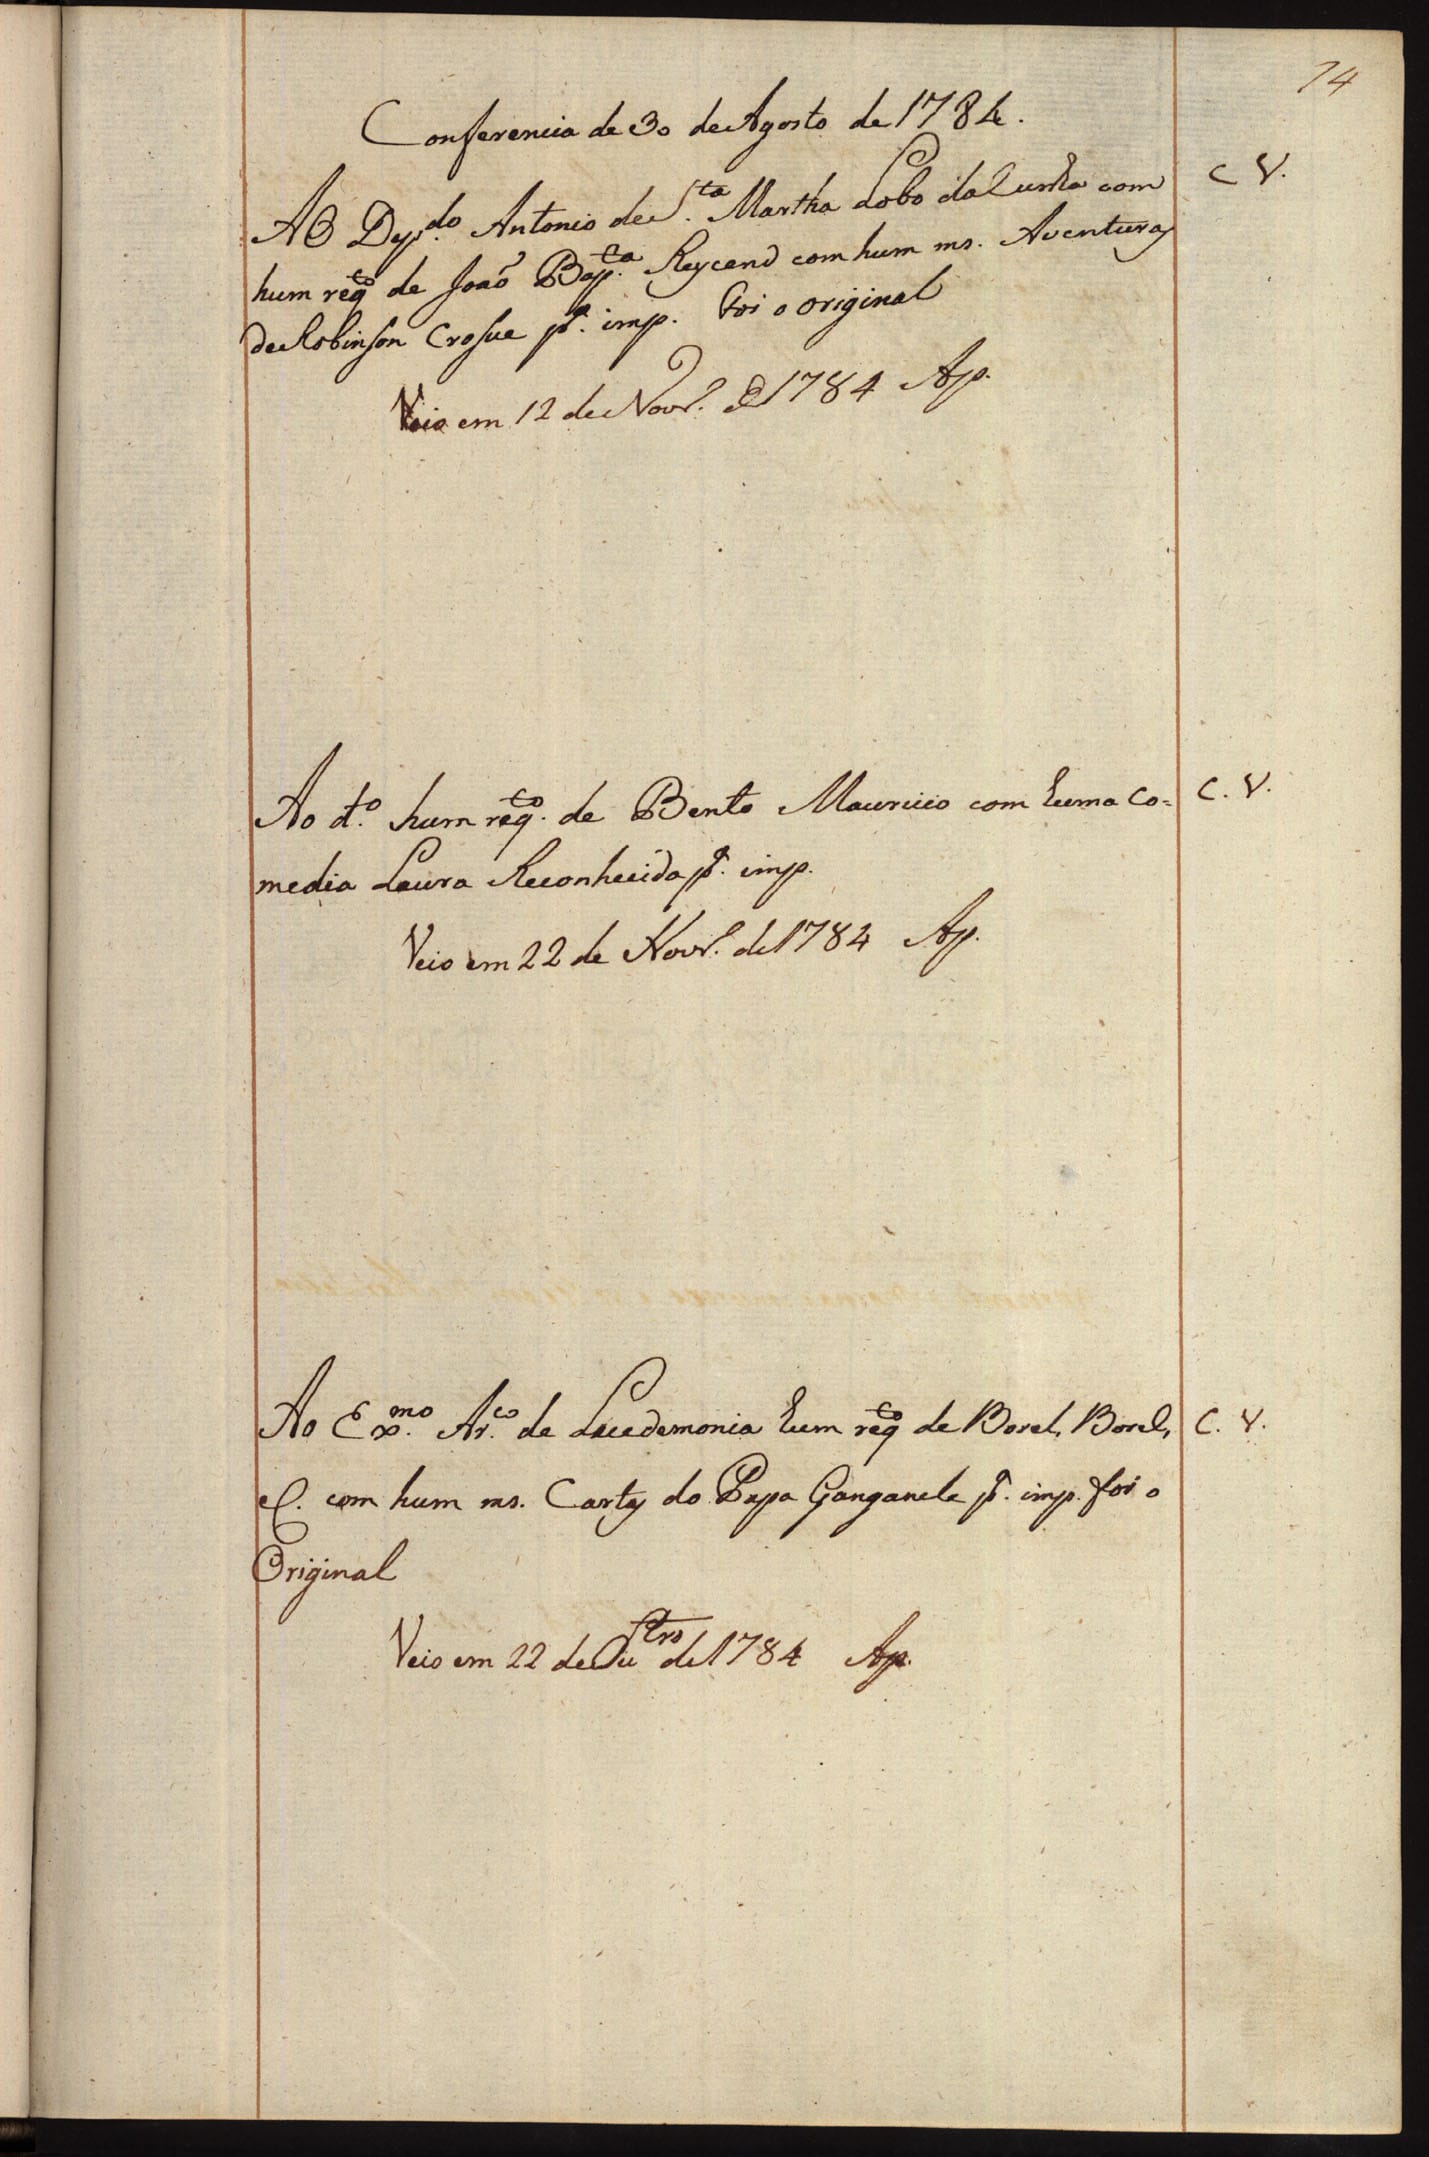 74
Conferencia de 30 de Agosto de 1784.
AO Dep.do Antonio de S.ta Martha Lobo da Cunha com
C V.
hum req.to de João Bap.ta Reycend com hum ms. Aventuras
de Robinson Crosue p.a imp. foi o original
Veio em 12 de Novr.o de 1784 Ap.
Ao d.o hum req.to de Bento Mauricio com huma Co=
C. V.
media Laura Reconhecida p.a imp.
Veio em 22 de Novr.o de 1784 Ap.
Ao Ex.mo Ar.co de Lacedemonia hum req.to de Borel, Borel,
C. V.
e C. com hum ms. Cartas do Papa Ganganele p.a imp. foi o
Original
Veio em 22 de Outro de 1784 Ap.